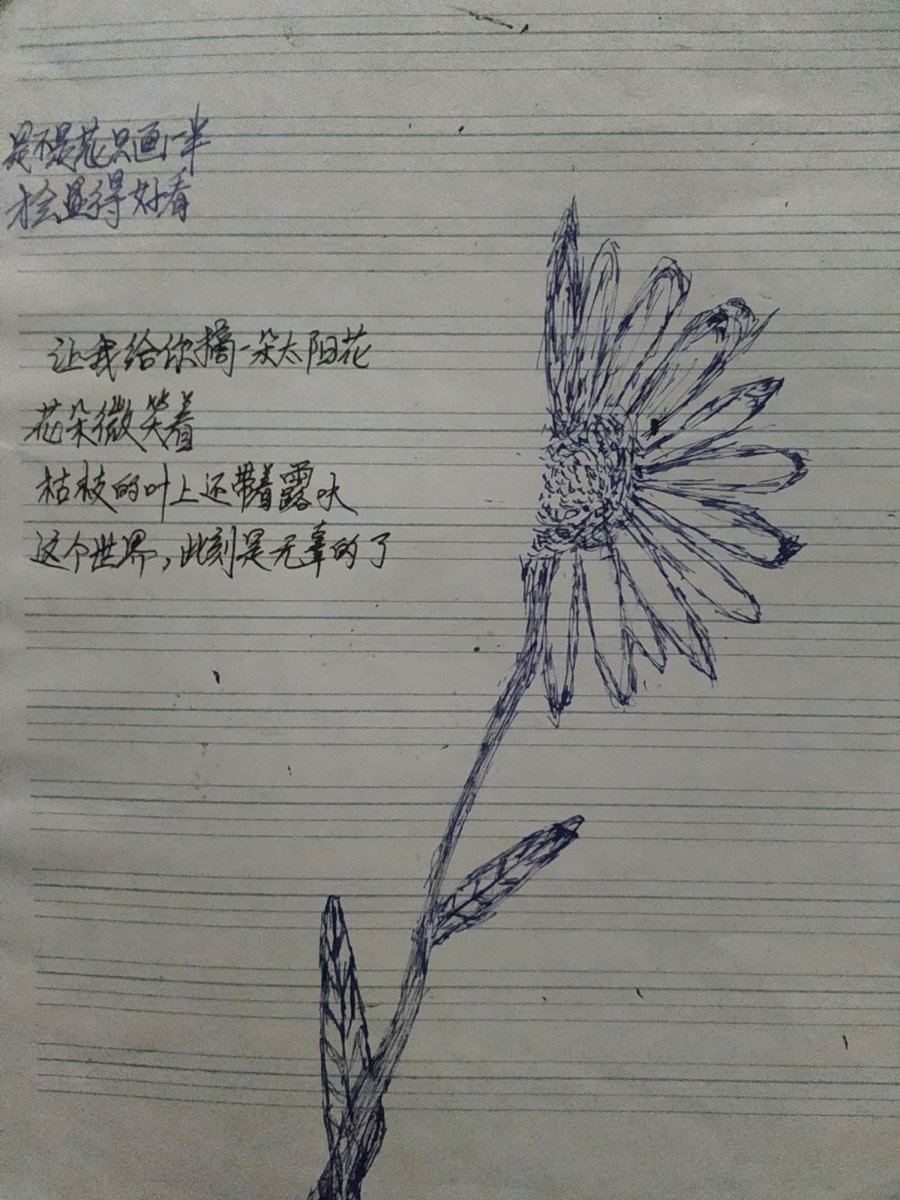 是不是花只画一半
才会显得好看
让我给你摘一朵太阳花
花朵微笑着
枯枝的叶上还带着露水
这个世界，此刻是无辜的了